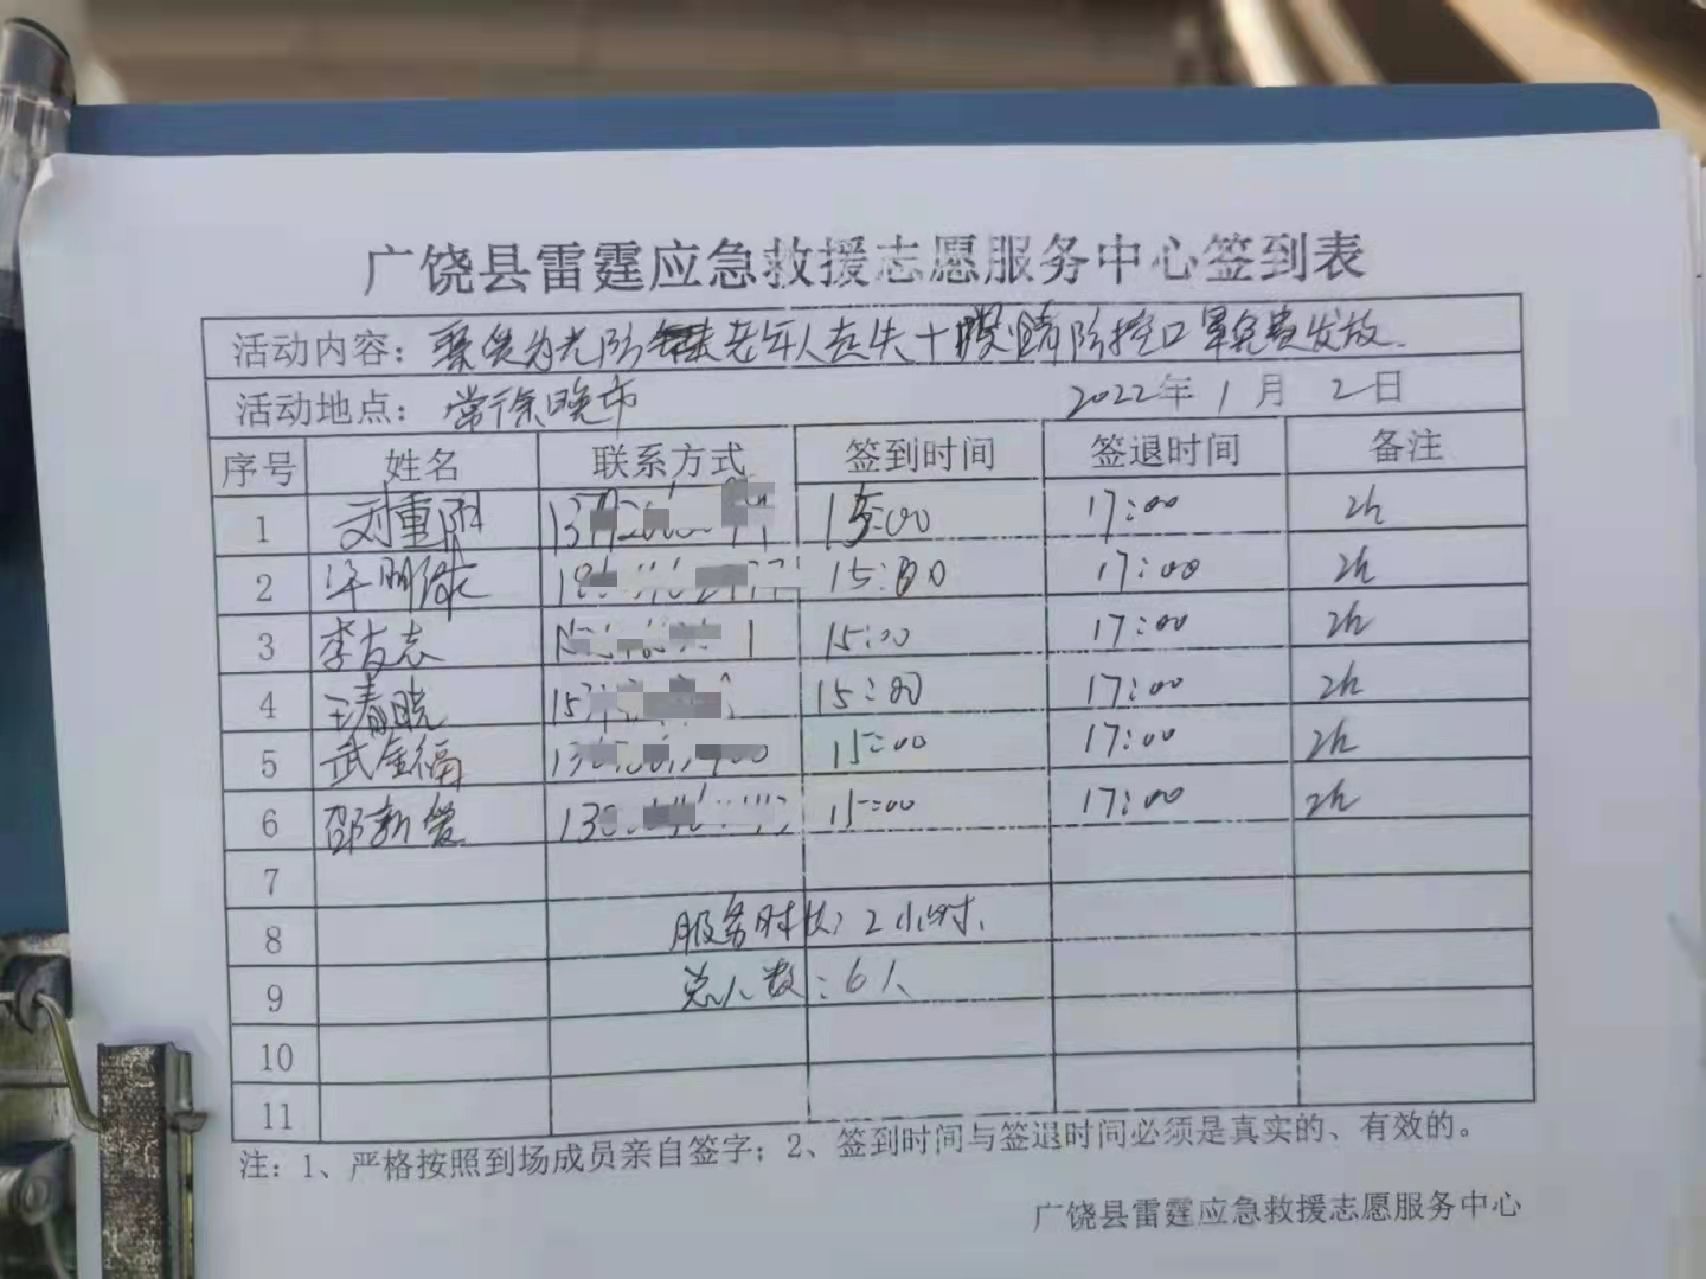 广饶县雷霆应急救援志愿服务中心签到表
活动内容：老年人走失十 防控口罩免费发放.
活动地点：常徐晚市 2022年1月2日
序号 姓名 联系方式 签到时间 签退时间 备注
1 刘重阳 15:00 17:00 2h
2 15:00 17:00 2h
3 李友志 15:00 17:00 2h
4 王春晓 15:00 17:00 2h
5 武金福 15:00 17:00 2h
6 邵新爱 15:00 17:00 2h
7
8 服务时长：2小时.
9 总人数：6人
10
11
注：1、严格按照到场成员亲自签字；2、签到时间与签退时间必须是真实的、有效的。
广饶县雷霆应急救援志愿服务中心